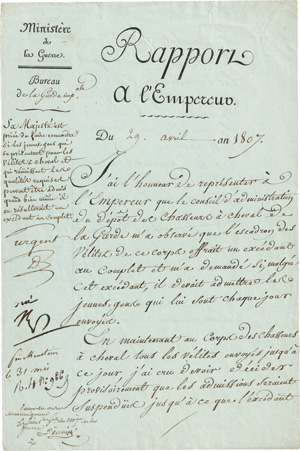 Ministère
de
la Guerre.
Bureau
de la Garde imp.ale
Rapport
A l'Empereur.
Du 29 avril an 1807.
Sa Majesté est
priée de faire connaître
si les jeunes gens qui
se présentent pour les
Vélites à cheval et
qui réunissent les
qualités requises
peuvent être admis
quand bien même il
en résulterait un
excédant au complet.
urgent
J'ai l'honneur de représenter à
l'Empereur que le conseil d'administration
du dépôt des Chasseurs à cheval de
la Garde m'a observé que l'escadron des
Vélites de ce corps offrait un excédant
au Complet et m'a demandé si malgré
cet excédant, il devait admettre les
jeunes gens qui lui sont chaque jour
envoyés.
En maintenant au Corps des chasseurs
à cheval tous les Vélites envoyés jusqu'à
ce jour j'ai cru devoir décider
provisoirement que les admissions seraient
suspendues jusqu'à ce que l'excédant
31 mai